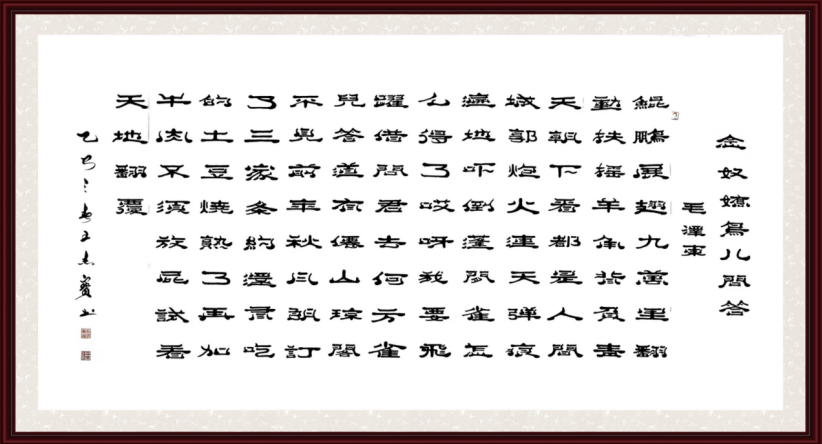 念奴嬌鳥儿問答
毛澤東
鯤鵬展翅九萬里翻
動扶摇羊角背負青
天朝下看都是人間
城郭炮火連天彈痕
遍地吓倒蓬間雀怎
么得了哎呀我要飛
躍借問君去何方雀
兒答道有僊山瓊閣
不見前年秋月朗訂
了三家条約還有吃
的土豆燒熟了再加
牛肉不須放屁試看
天地翻覆
乙巳之春王志寶书